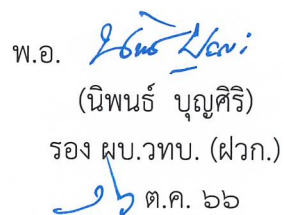 พ.อ.
(นิพนธ์ บุญศิริ)
รอง ผบ.วทบ. (ฝวก.)
๑๖ ต.ค. ๖๖